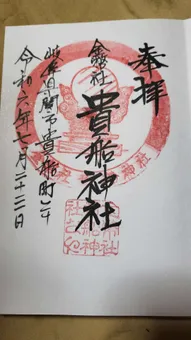 奉拝
金幣社
貴船神社
岐阜県関市貴船町
令和六年七月二十二日
神社